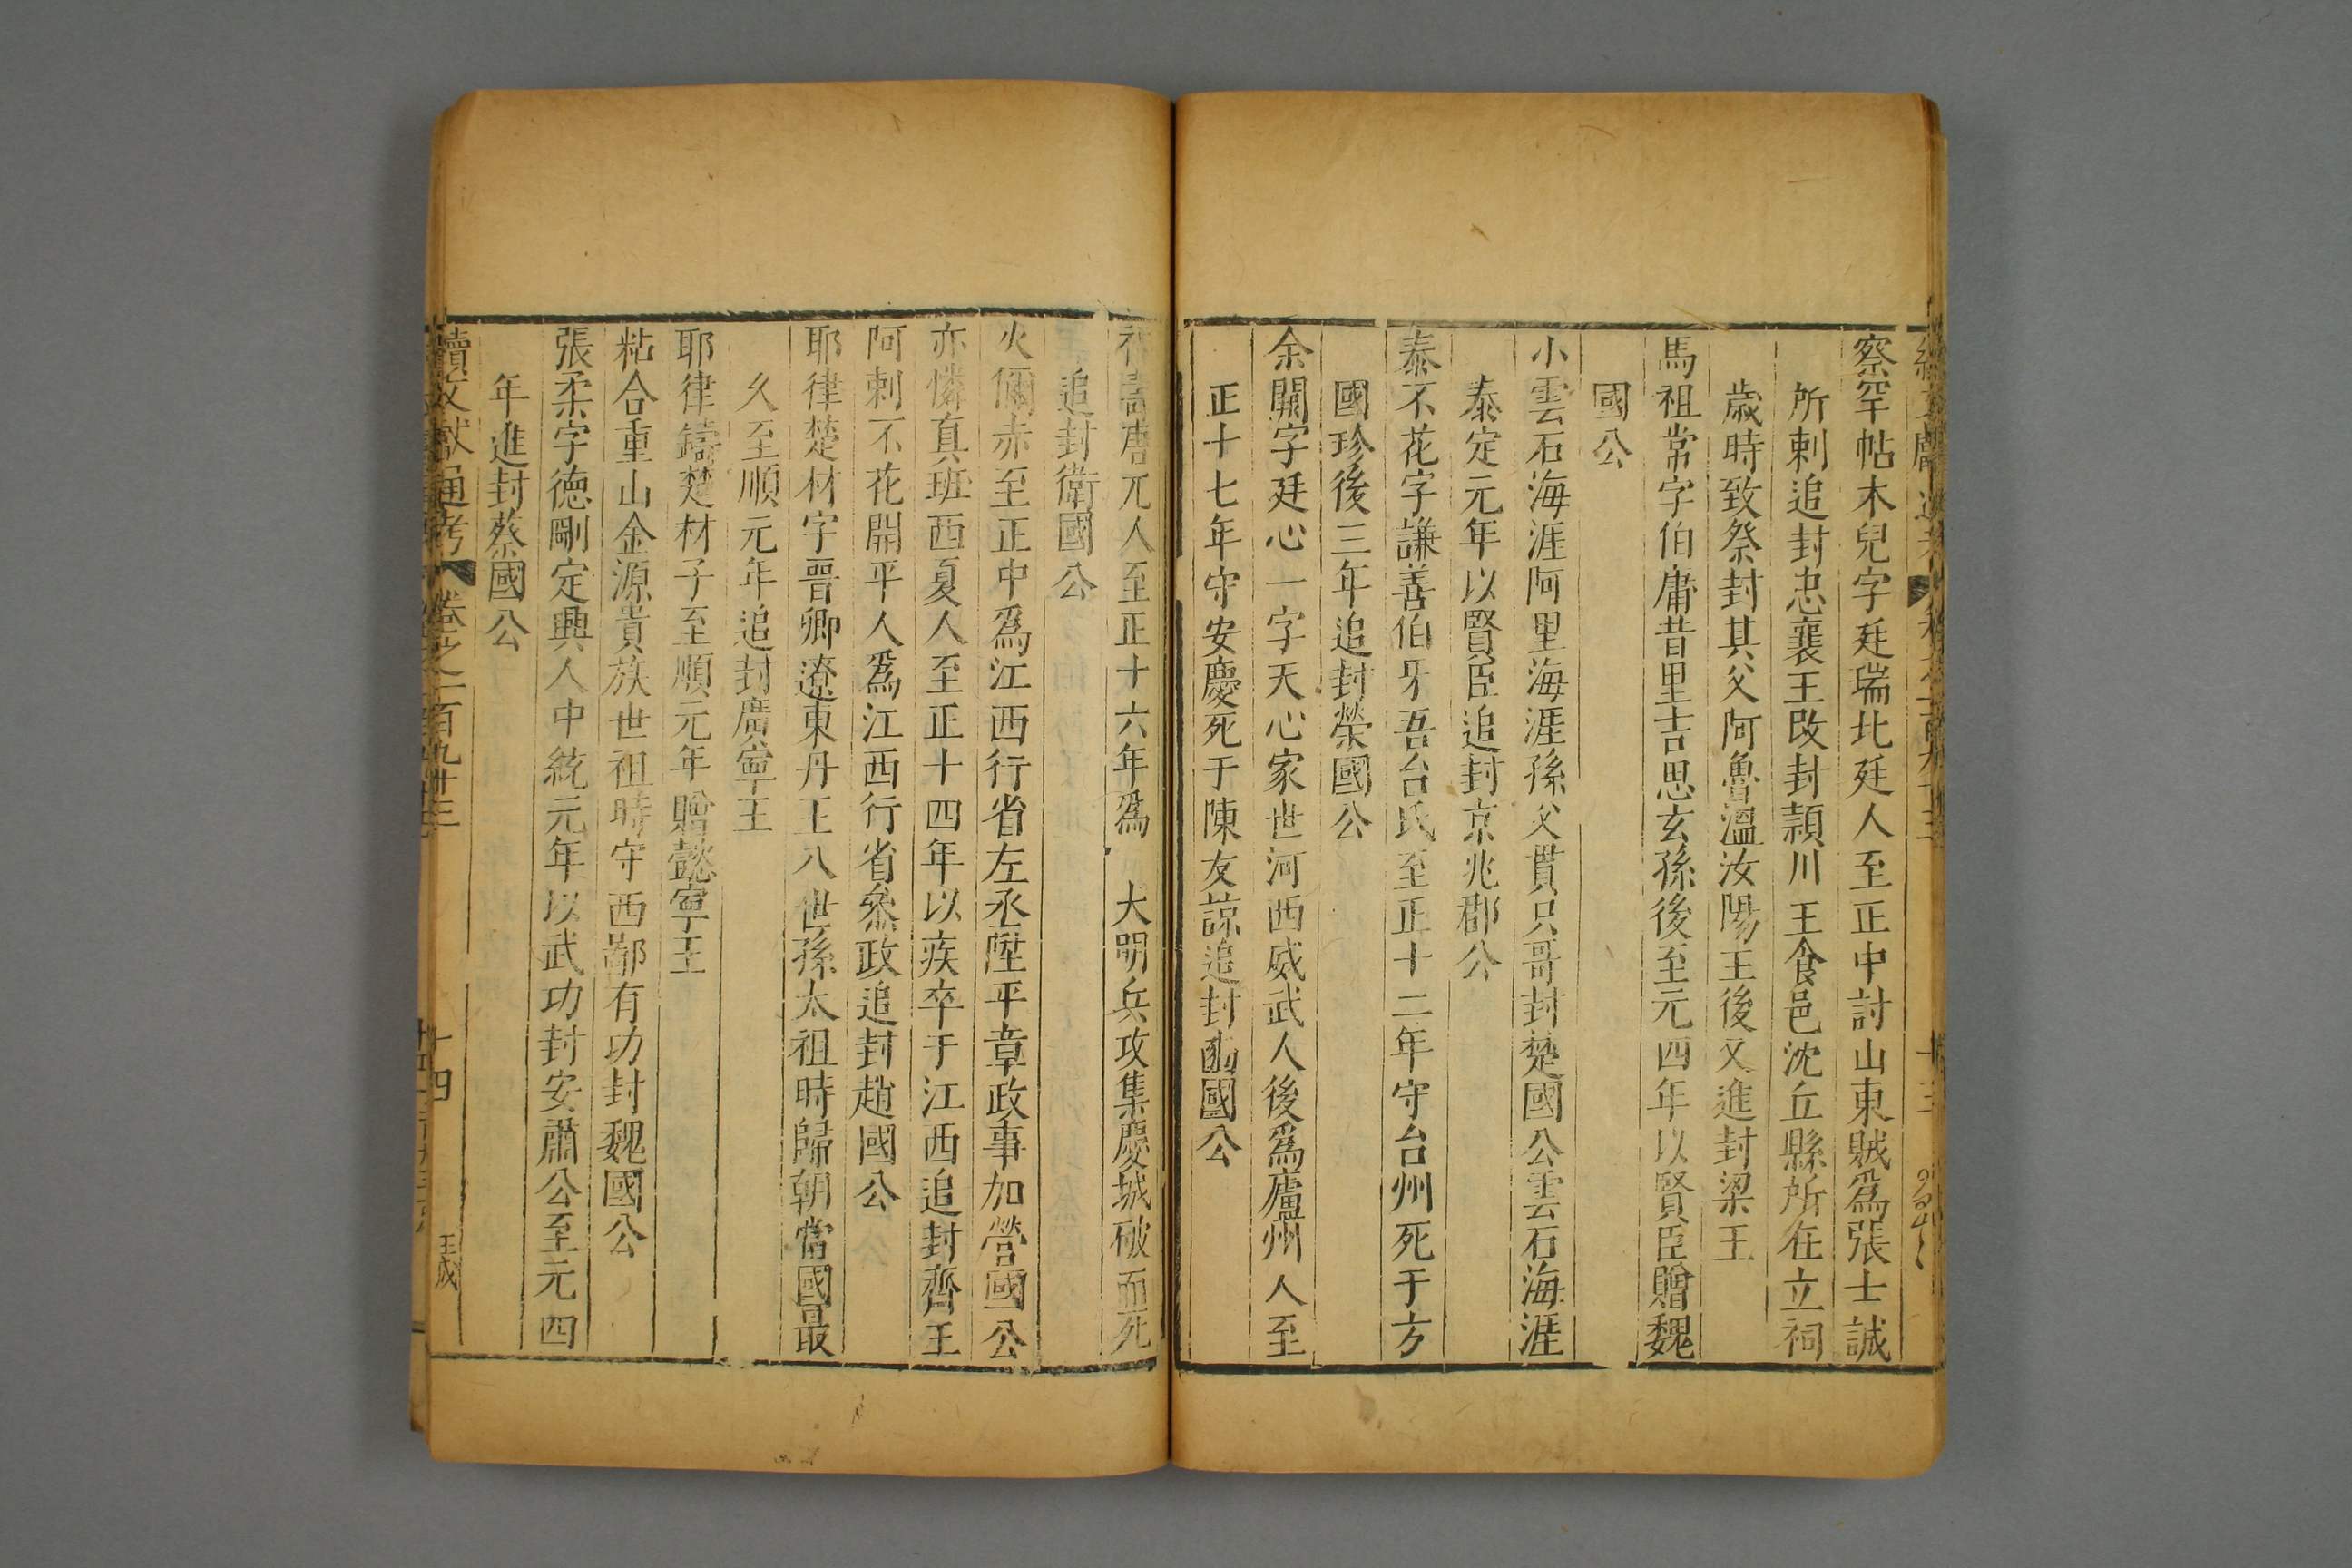 察罕帖木兒字廷瑞北廷人至正中討山東賊爲張士誠
所刺追封忠襄王改封潁川王食邑沈丘縣所在立祠
歲時致祭封其父阿魯溫汝陽王後又進封梁王
馬祖常字伯庸昔里吉思玄孫後至元四年以賢臣贈魏
國公
小雲石海涯阿里海涯孫父貫只哥封楚國公雲石海涯
泰定元年以賢臣追封京兆郡公
泰不花字謙善伯牙吾台氏至正十二年守台州死于方
國珍後三年追封榮國公
余闕字廷心一字天心家世河西威武人後爲廬州人至
正十七年守安慶死于陳友諒追封豳國公
壽唐兀人至正十六年爲 大明兵攻集慶城破而死
追封衛國公
火儞赤至正中爲江西行省左丞陞平章政事加營國公
亦憐真班西夏人至正十四年以疾卒于江西追封齊王
阿剌不花開平人爲江西行省叅政追封趙國公
耶律楚材字晉卿遼東丹王八世孫太祖時歸朝當國最
久至順元年追封廣寧王
耶律鑄楚材子至順元年贈懿寧王
粘合重山金源貴族世祖時守西鄙有功封魏國公
張柔字德剛定興人中統元年以武功封安肅公至元四
年進封蔡國公
續文獻通考 卷之一百九十三 十四 王成